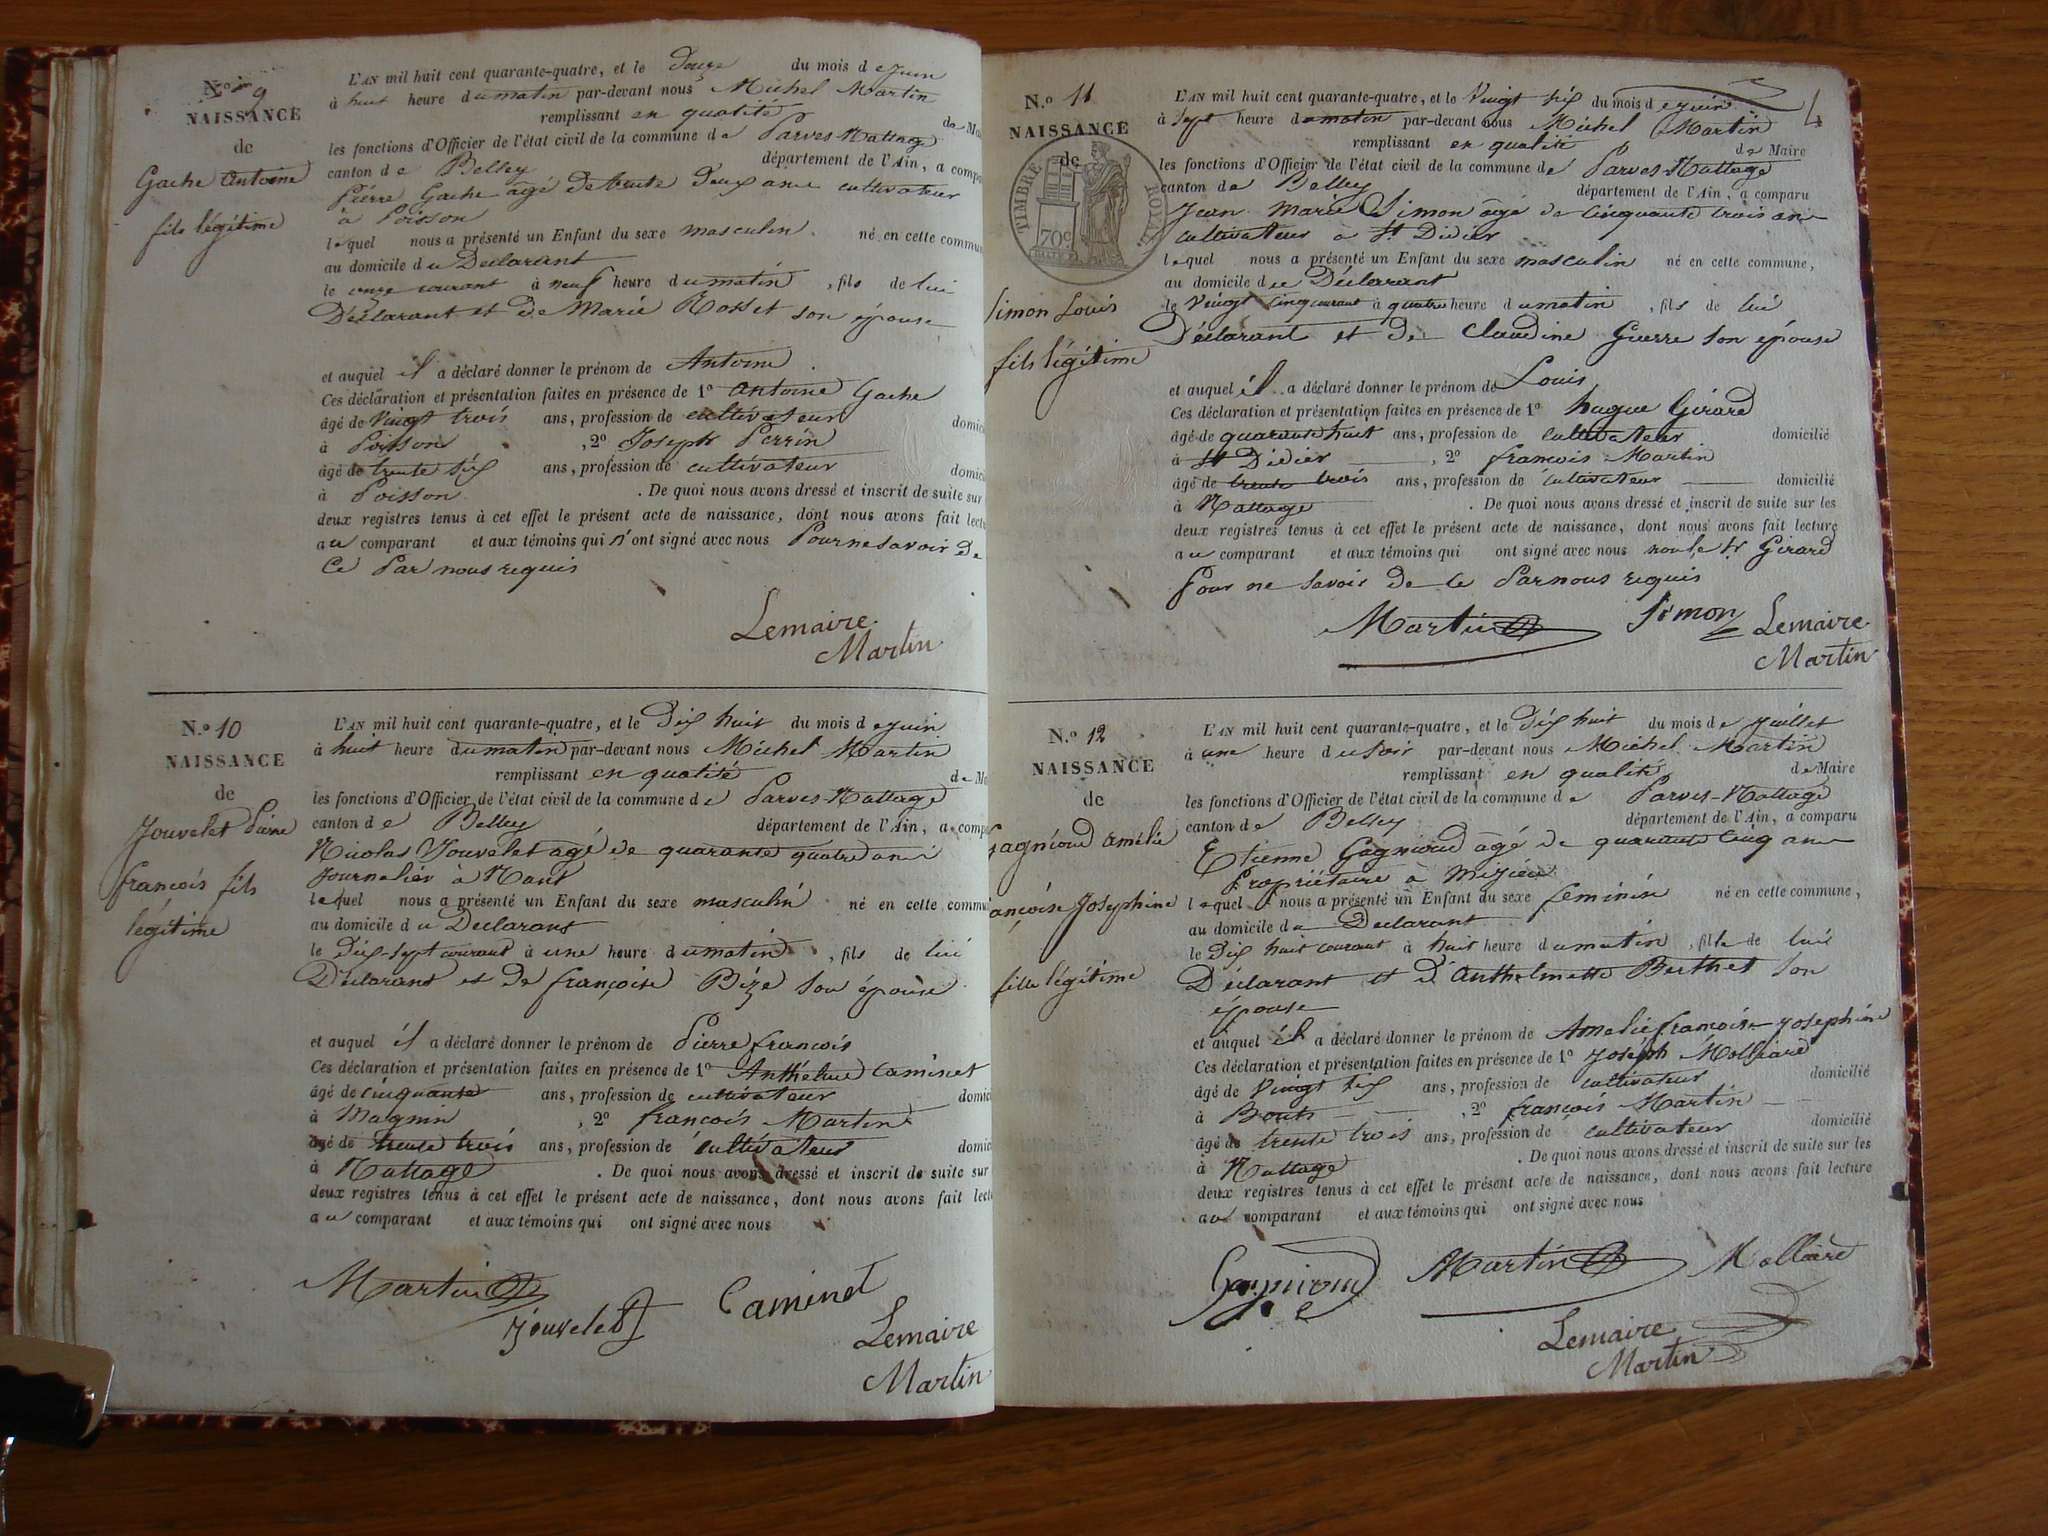 N.º 9
NAISSANCE
de
Gache Antoine
fils légitime
L'AN mil huit cent quarante-quatre, et le Douze du mois de juin
à huit heure du matin par-devant nous Michel Martin
remplissant en qualité de
les fonctions d'Officier de l'état civil de la commune de Parves-Nattage
canton de Belley département de l'Ain, a
Pierre Gache âgé de trente deux ans cultivateur
à Poisson
lequel nous a présenté un Enfant du sexe masculin né en cette
au domicile du Déclarant
le onze courant à neuf heure du matin, fils de lui
Déclarant et de Marie Rosset son épouse
et auquel il a déclaré donner le prénom de Antoine
Ces déclaration et présentation faites en présence de 1º Antoine Gache
âgé de Vingt trois ans, profession de cultivateur
à Poisson, 2º Joseph Perrin
âgé de trente six ans, profession de cultivateur
à Poisson. De quoi nous avons dressé et inscrit de suite sur
deux registres tenus à cet effet le présent acte de naissance, dont nous avons fait
au comparant et aux témoins qui n'ont signé avec nous Pour ne savoir de
Ce Par nous requis
Lemaire
Martin
N.º 10
NAISSANCE
de
Jouvelet Pierre
francois fils
légitime
L'AN mil huit cent quarante-quatre, et le Dix huit du mois de juin
à huit heure du matin par-devant nous Michel Martin
remplissant en qualité de
les fonctions d'Officier de l'état civil de la commune de Parves-Nattage
canton de Belley département de l'Ain, a
Nicolas Jouvelet agé de quarante quatre ans
Journalier à Nant
lequel nous a présenté un Enfant du sexe masculin né en cette
au domicile du Declarant
le Dix-sept courant à une heure du matin, fils de lui
Déclarant et de françoise Bize son épouse
et auquel il a déclaré donner le prénom de Pierre francois
Ces déclaration et présentation faites en présence de 1º Anthelme Caminet
âgé de cinquante ans, profession de cultivateur
à Magnin, 2º francois Martin
âgé de trente trois ans, profession de cultivateur
à Nattage. De quoi nous avons dressé et inscrit de suite sur
deux registres tenus à cet effet le présent acte de naissance, dont nous avons fait
au comparant et aux témoins qui ont signé avec nous
Martin
Jouvelet
Caminet
Lemaire
Martin
4
N.º 11
NAISSANCE
de
TIMBRE ROYAL
70c
Simon Louis
fils légitime
L'AN mil huit cent quarante-quatre, et le Vingt six du mois de juin
à sept heure du matin par-devant nous Michel Martin
remplissant en qualité de Maire
les fonctions d'Officier de l'état civil de la commune de Parves-Nattage
canton de Belley département de l'Ain, a comparu
Jean Marie Simon âgé de cinquante trois ans
cultivateur à St Didier
lequel nous a présenté un Enfant du sexe masculin né en cette commune,
au domicile du Déclarant
le Vingt cinq courant à quatre heure du matin, fils de lui
Déclarant et de Claudine Guerre son épouse
et auquel il a déclaré donner le prénom de Louis
Ces déclaration et présentation faites en présence de 1º hugue Girard
âgé de quarante huit ans, profession de cultivateur domicilié
à St Didier, 2º francois Martin
âgé de trente trois ans, profession de cultivateur domicilié
à Nattage. De quoi nous avons dressé et inscrit de suite sur les
deux registres tenus à cet effet le présent acte de naissance, dont nous avons fait lecture
au comparant et aux témoins qui ont signé avec nous non le Sr Girard
Pour ne savoir de Ce Par nous requis
Martin
Simon
Lemaire
Martin
N.º 12
NAISSANCE
de
Gagnioud amélie
ançoise Josephine
fille légitime
L'AN mil huit cent quarante-quatre, et le Dix huit du mois de Juillet
à une heure du soir par-devant nous Michel Martin
remplissant en qualité de Maire
les fonctions d'Officier de l'état civil de la commune de Parves-Nattage
canton de Belley département de l'Ain, a comparu
Etienne Gagnioud âgé de quarante cinq ans
Propriétaire à
lequel nous a présenté un Enfant du sexe feminin né en cette commune,
au domicile du Declarant
le Dix huit courant à huit heure du matin, fille de lui
Déclarant et d'Anthelmette Berthet son
épouse
et auquel il a déclaré donner le prénom de Amelie francoise Josephine
Ces déclaration et présentation faites en présence de 1º Joseph Mollard
âgé de Vingt six ans, profession de cultivateur domicilié
à, 2º françois Martin
âgé de trente trois ans, profession de cultivateur domicilié
à Nattage. De quoi nous avons dressé et inscrit de suite sur les
deux registres tenus à cet effet le présent acte de naissance, dont nous avons fait lecture
au comparant et aux témoins qui ont signé avec nous
Gagnioud
Martin
Mollard
Lemaire
Martin